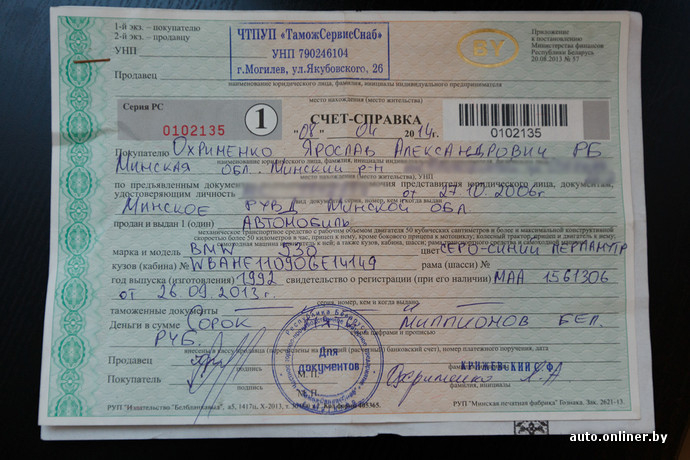 1-й экз. - покупателю
2-й экз. - продавцу
УНП
Продавец
ЧТПУП «ТаможСервисСнаб»
УНП 790246104
г.Могилев, ул.Якубовского, 26
BY
Приложение
к постановлению
Министерства финансов
Республики Беларусь
20.08.2013 № 57
наименование юридического лица, фамилия, инициалы индивидуального предпринимателя
место нахождения (место жительства)
Серия РС
0102135
1
СЧЕТ-СПРАВКА
"08" 04 2014г.
0102135
Покупателю Охрименко Ярослав Александрович РБ
наименование юридического лица, фамилия, инициалы
Минская обл. Минский р-н
место нахождения (место жительства), УНП
по предъявленным документам представителя юридического лица, документам,
удостоверяющим личность от 27.10.2006г
вид документа, серия, номер, кем и когда выдан
Минское РУВД Минской обл
продан и выдан 1 (один) Автомобиль
механическое транспортное средство с рабочим объемом двигателя 50 кубических сантиметров и более и максимальной конструктивной
скоростью более 50 километров в час, прицеп к нему, кроме бокового прицепа к мотоциклу; колесный трактор, прицеп и двигатель к нему;
марка и модель BMW 530 цвет серо-синий перламутр
кузов (кабина) № WBAHE110906E14149 рама (шасси) №
год выпуска (изготовления) 1992 свидетельство о регистрации (при его наличии) МАА 1561306
от 26 09 2013г.
серия, номер, кем и когда выдано
таможенные документы и
Деньги в сумме сорок миллионов бел.
цифрами и прописью
руб.
внесены в кассу продавца (перечислены на текущий (расчетный) банковский счет, номер платежного поручения, дата
Республика Беларусь
Для
документов
Продавец
подпись
М.П.
КРИЖЕВСКИЙ С.Ф.
фамилия, инициалы
Покупатель
подпись
М.П.
Охрименко Я.А
фамилия, инициалы
РУП "Издательство "Белбланкавыд", а5, 1417ц, X-2013, г.
РУП "Минская печатная фабрика" Гознака. Зак. 2621-13.
auto.onliner.by